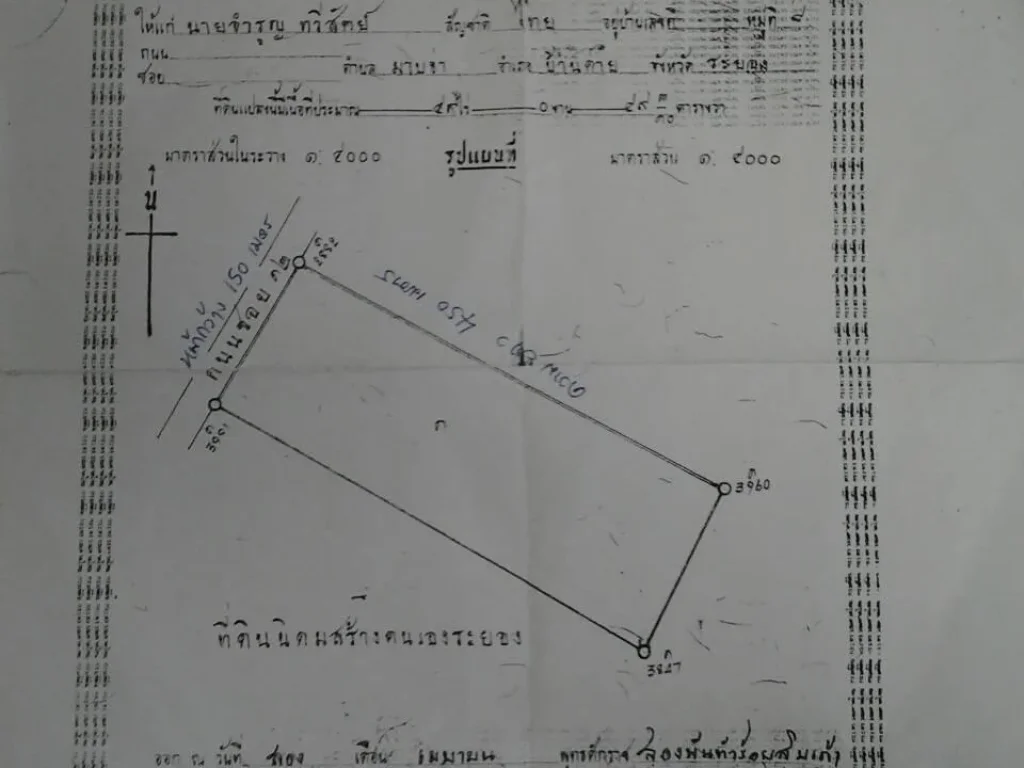 ให้แก่ นายจำรูญ ทวีสัตย์ สัญชาติ ไทย อยู่บ้านเลขที่ หมู่ที่
ถนน
ซอย ตำบล มาบข่า อำเภอ บ้านค่าย จังหวัด ระยอง
ที่ดินแปลงนี้มีเนื้อที่ประมาณ ไร่ ๐ งาน ตารางวา
มาตราส่วนในระวาง ๑: ๔๐๐๐ รูปแผนที่ มาตราส่วน ๑: ๔๐๐๐
น
หน้ากว้าง 150 เมตร
ถนนซอย ค๒
450 เมตร
ค
3960
ค
3847
ที่ดินนิคมสร้างตนเองระยอง
ออก ณ วันที่ สอง เดือน เมษายน พุทธศักราช สองพันห้าร้อยสิบเก้า